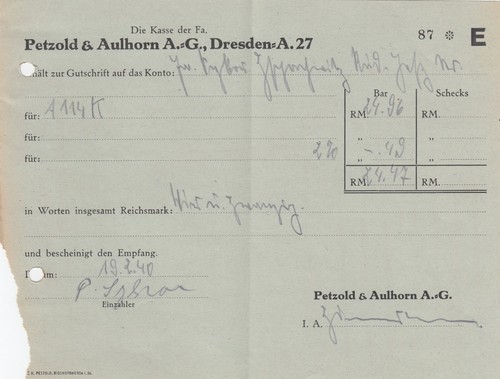 Die Kasse der Fa.
87 ※ E
Petzold & Aulhorn A.=G., Dresden=A. 27
hält zur Gutschrift auf das Konto:
Bar Schecks
für: A 114 K RM. 24.96 RM.
für: „ „
für: 2% „ -.49 „
RM. 24.47 RM.
in Worten insgesamt Reichsmark: Vier u. zwanzig
und bescheinigt den Empfang.
19.2.40
Einzahler
Petzold & Aulhorn A.=G.
I. A.